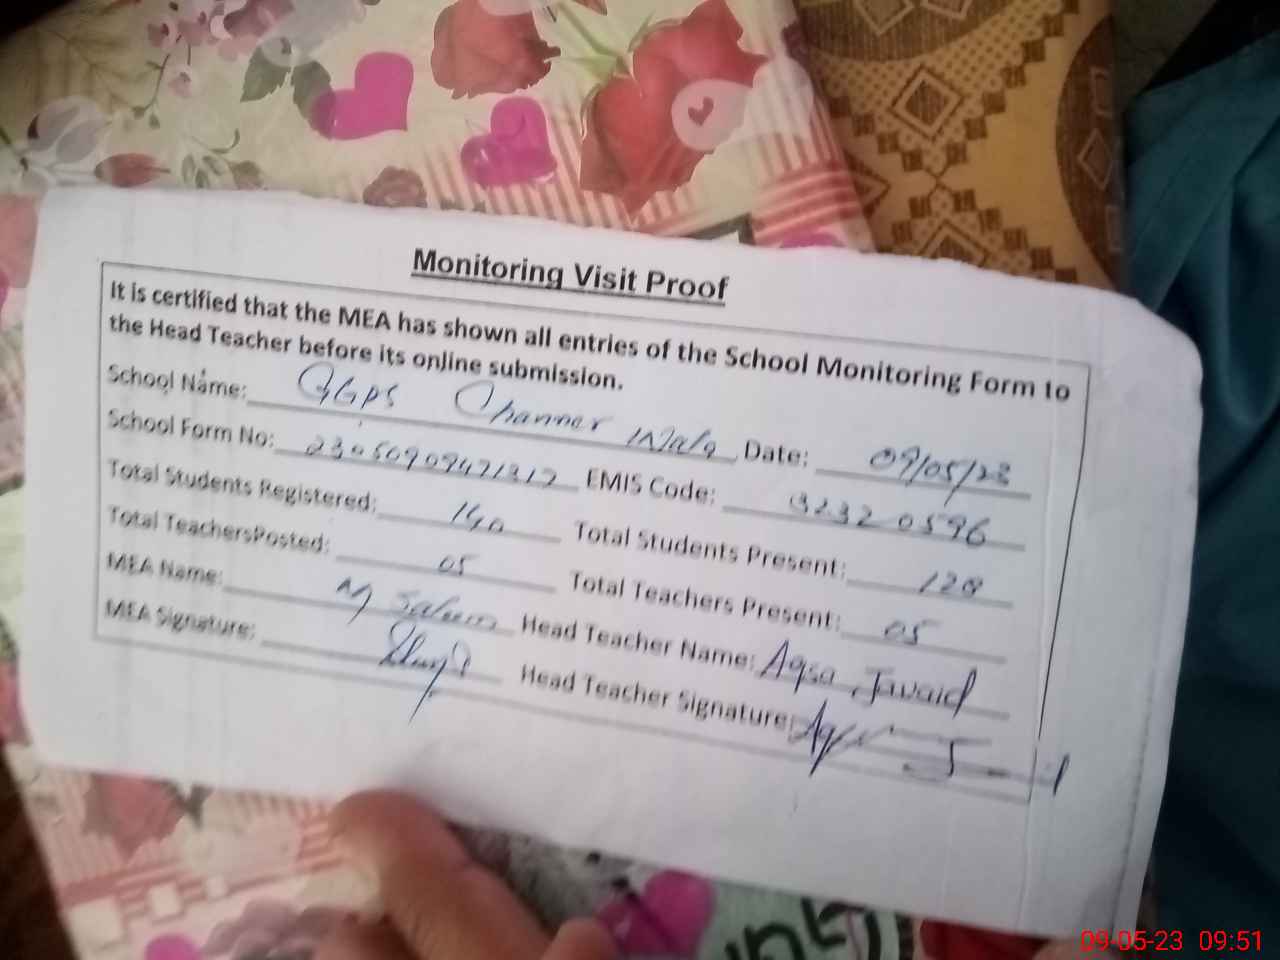 Monitoring Visit Proof
It is certified that the MEA has shown all entries of the School Monitoring Form to
the Head Teacher before its online submission.
School Name: GGPS Channer Wala Date: 09/05/23
School Form No: 23050909471317 EMIS Code: 32320596
Total Students Registered: 140 Total Students Present: 128
Total TeachersPosted: 05 Total Teachers Present: 05
MEA Name: M Saleem Head Teacher Name: Aqsa Javaid
MEA Signature: Head Teacher Signature:
09-05-23 09:51